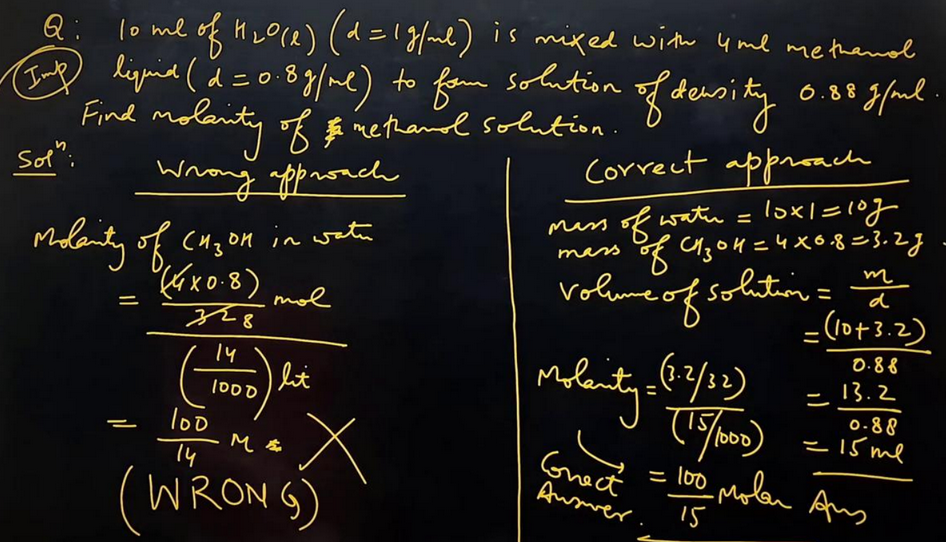 Q: 10 ml of H₂O(l) (d=1g/ml) is mixed with 4ml methanol
Imp
liquid (d=0.8g/ml) to form solution of density 0.88 g/ml.
Find molarity of methanol solution.
Solⁿ:
Wrong approach
Molarity of CH₃OH in water
= (4×0.8)/32 mol
8
(14/1000) lit
= 100/14 M
(WRONG)
Correct approach
mass of water = 10×1=10g
mass of CH₃OH=4×0.8=3.2g
Volume of solution = m/d
= (10+3.2)/0.88
= 13.2/0.88
= 15 ml
Molarity = (3.2/32)/(15/1000)
= 100/15 Molar Ans
Correct
Answer.